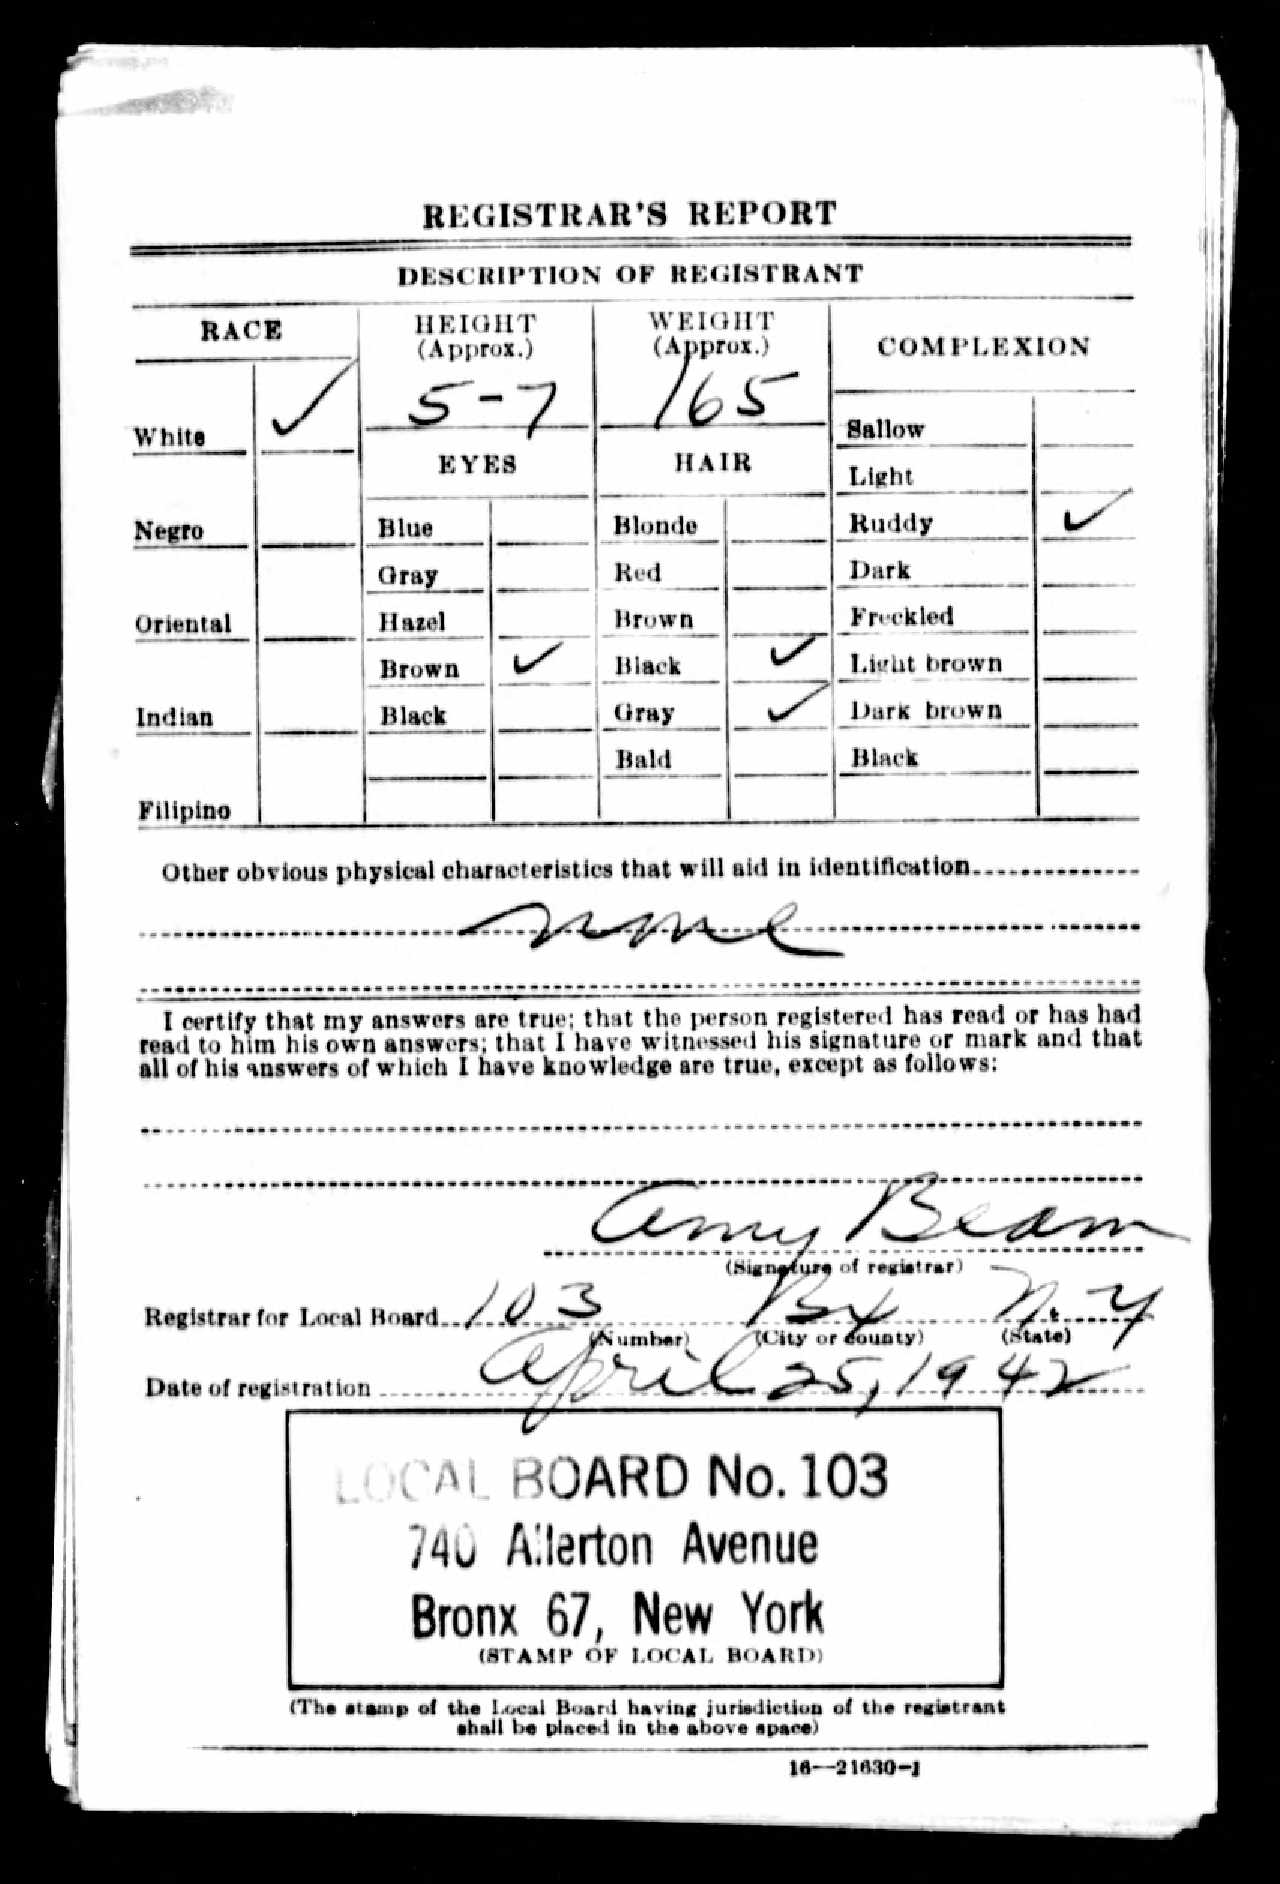 REGISTRAR'S REPORT
DESCRIPTION OF REGISTRANT
RACE
HEIGHT
(Approx.)
WEIGHT
(Approx.)
COMPLEXION
5-7
165
White ✓
EYES
HAIR
Sallow
Light
Negro
Blue
Blonde
Ruddy ✓
Gray
Red
Dark
Oriental
Hazel
Brown
Freckled
Brown ✓
Black ✓
Light brown
Indian
Black
Gray ✓
Dark brown
Bald
Black
Filipino
Other obvious physical characteristics that will aid in identification
none
I certify that my answers are true; that the person registered has read or has had
read to him his own answers; that I have witnessed his signature or mark and that
all of his answers of which I have knowledge are true, except as follows:
Amy Beam
(Signature of registrar)
Registrar for Local Board 103 Bx N.Y
(Number) (City or county) (State)
Date of registration April 25, 1942
LOCAL BOARD No. 103
740 Allerton Avenue
Bronx 67, New York
(STAMP OF LOCAL BOARD)
(The stamp of the Local Board having jurisdiction of the registrant
shall be placed in the above space)
16—21630-1